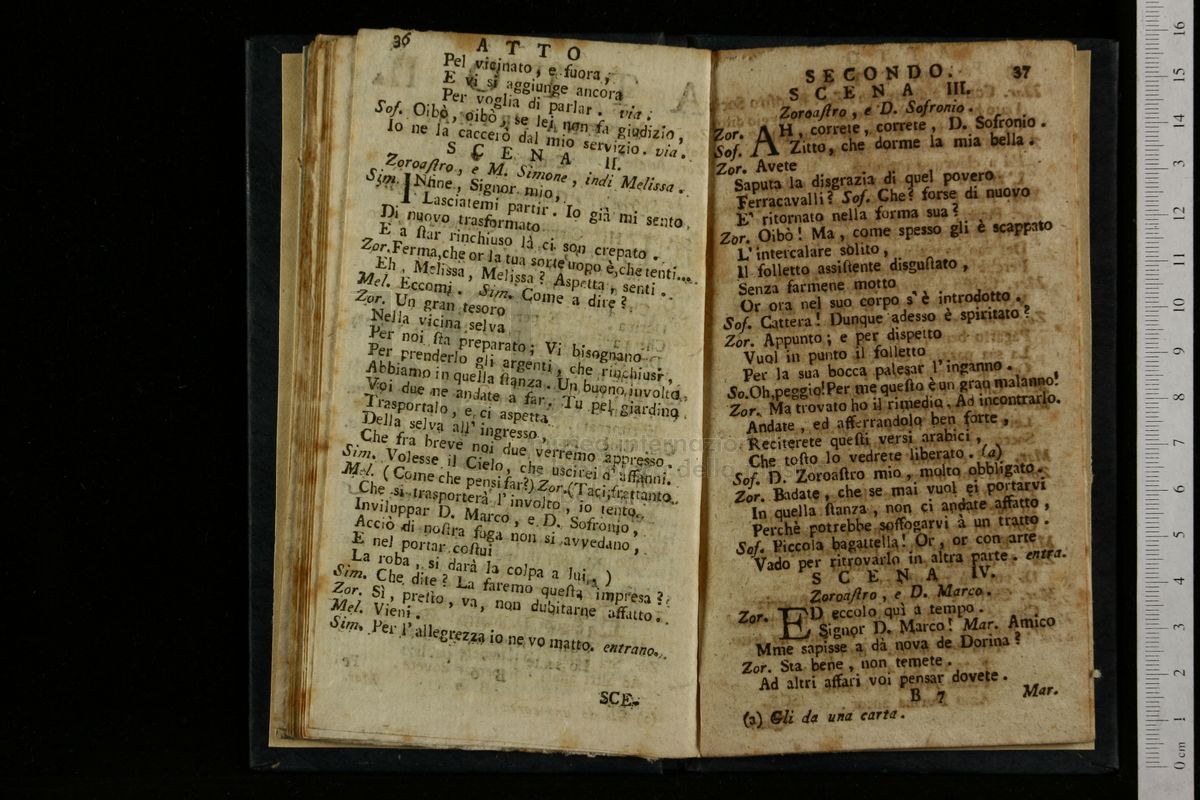 36 ATTO
Pel vicinato, e fuora,
E vi si aggiunge ancora
Per voglia di parlar. via.
Sof. Oibò, oibò, se lei non fa giudizio,
Io ne la caccerò dal mio servizio. via.
SCENA II.
Zoroastro, e M. Simone, indi Melissa.
Sim. INfine, Signor mio,
Lasciatemi partir. Io già mi sento
Di nuovo trasformato
E a star rinchiuso là ci son crepato.
Zor. Ferma, che or la tua sorte uopo è, che tenti...
Eh, Melissa, Melissa? Aspetta, senti.
Mel. Eccomi. Sim. Come a dire?
Zor. Un gran tesoro
Nella vicina selva
Per noi sta preparato; Vi bisognano
Per prenderlo gli argenti, che rinchiusi,
Abbiamo in quella stanza. Un buono involto,
Voi due ne andate a far. Tu pel giardino
Trasportalo, e ci aspetta
Della selva all'ingresso,
Che fra breve noi due verremo appresso.
Sim. Volesse il Cielo, che uscirei d'affanni.
Mel. (Come che pensi far?) Zor. (Taci; frattanto
Che si trasporterà l'involto, io tento
Inviluppar D. Marco, e D. Sofronio,
Acciò di nostra fuga non si avvedano,
E nel portar costui
La roba, si darà la colpa a lui.)
Sim. Che dite? La faremo questa impresa?
Zor. Sì, presto, va, non dubitarne affatto.
Mel. Vieni.
Sim. Per l'allegrezza io ne vo matto. entrano.
SCE-
SECONDO. 37
SCENA III.
Zoroastro, e D. Sofronio.
Zor. AH, correte, correte, D. Sofronio.
Sof. Zitto, che dorme la mia bella.
Zor. Avete
Saputa la disgrazia di quel povero
Ferracavalli? Sof. Che? forse di nuovo
E' ritornato nella forma sua?
Zor. Oibò! Ma, come spesso gli è scappato
L'intercalare solito,
Il folletto assistente disgustato,
Senza farmene motto
Or ora nel suo corpo s'è introdotto.
Sof. Cattera! Dunque adesso è spiritato?
Zor. Appunto; e per dispetto
Vuol in punto il folletto
Per la sua bocca palesar l'inganno.
So. Oh, peggio! Per me questo è un gran malanno!
Zor. Ma trovato ho il rimedio. Ad incontrarlo.
Andate, ed afferrandolo ben forte,
Reciterete questi versi arabici,
Che tosto lo vedrete liberato. (a)
Sof. D. Zoroastro mio, molto obbligato.
Zor. Badate, che se mai vuol ei portarvi
In quella stanza, non ci andate affatto,
Perchè potrebbe soffogarvi à un tratto.
Sof. Piccola bagattella! Or, or con arte
Vado per ritrovarlo in altra parte. entra.
SCENA IV.
Zoroastro, e D. Marco.
Zor. ED eccolo quì a tempo.
Signor D. Marco! Mar. Amico
Mme sapisse a dà nova de Dorina?
Zor. Sta bene, non temete.
Ad altri affari voi pensar dovete.
B 7 Mar.
(a) Gli da una carta.
16
15
14
13
12
11
10
9
8
7
6
5
4
3
2
1
0 cm